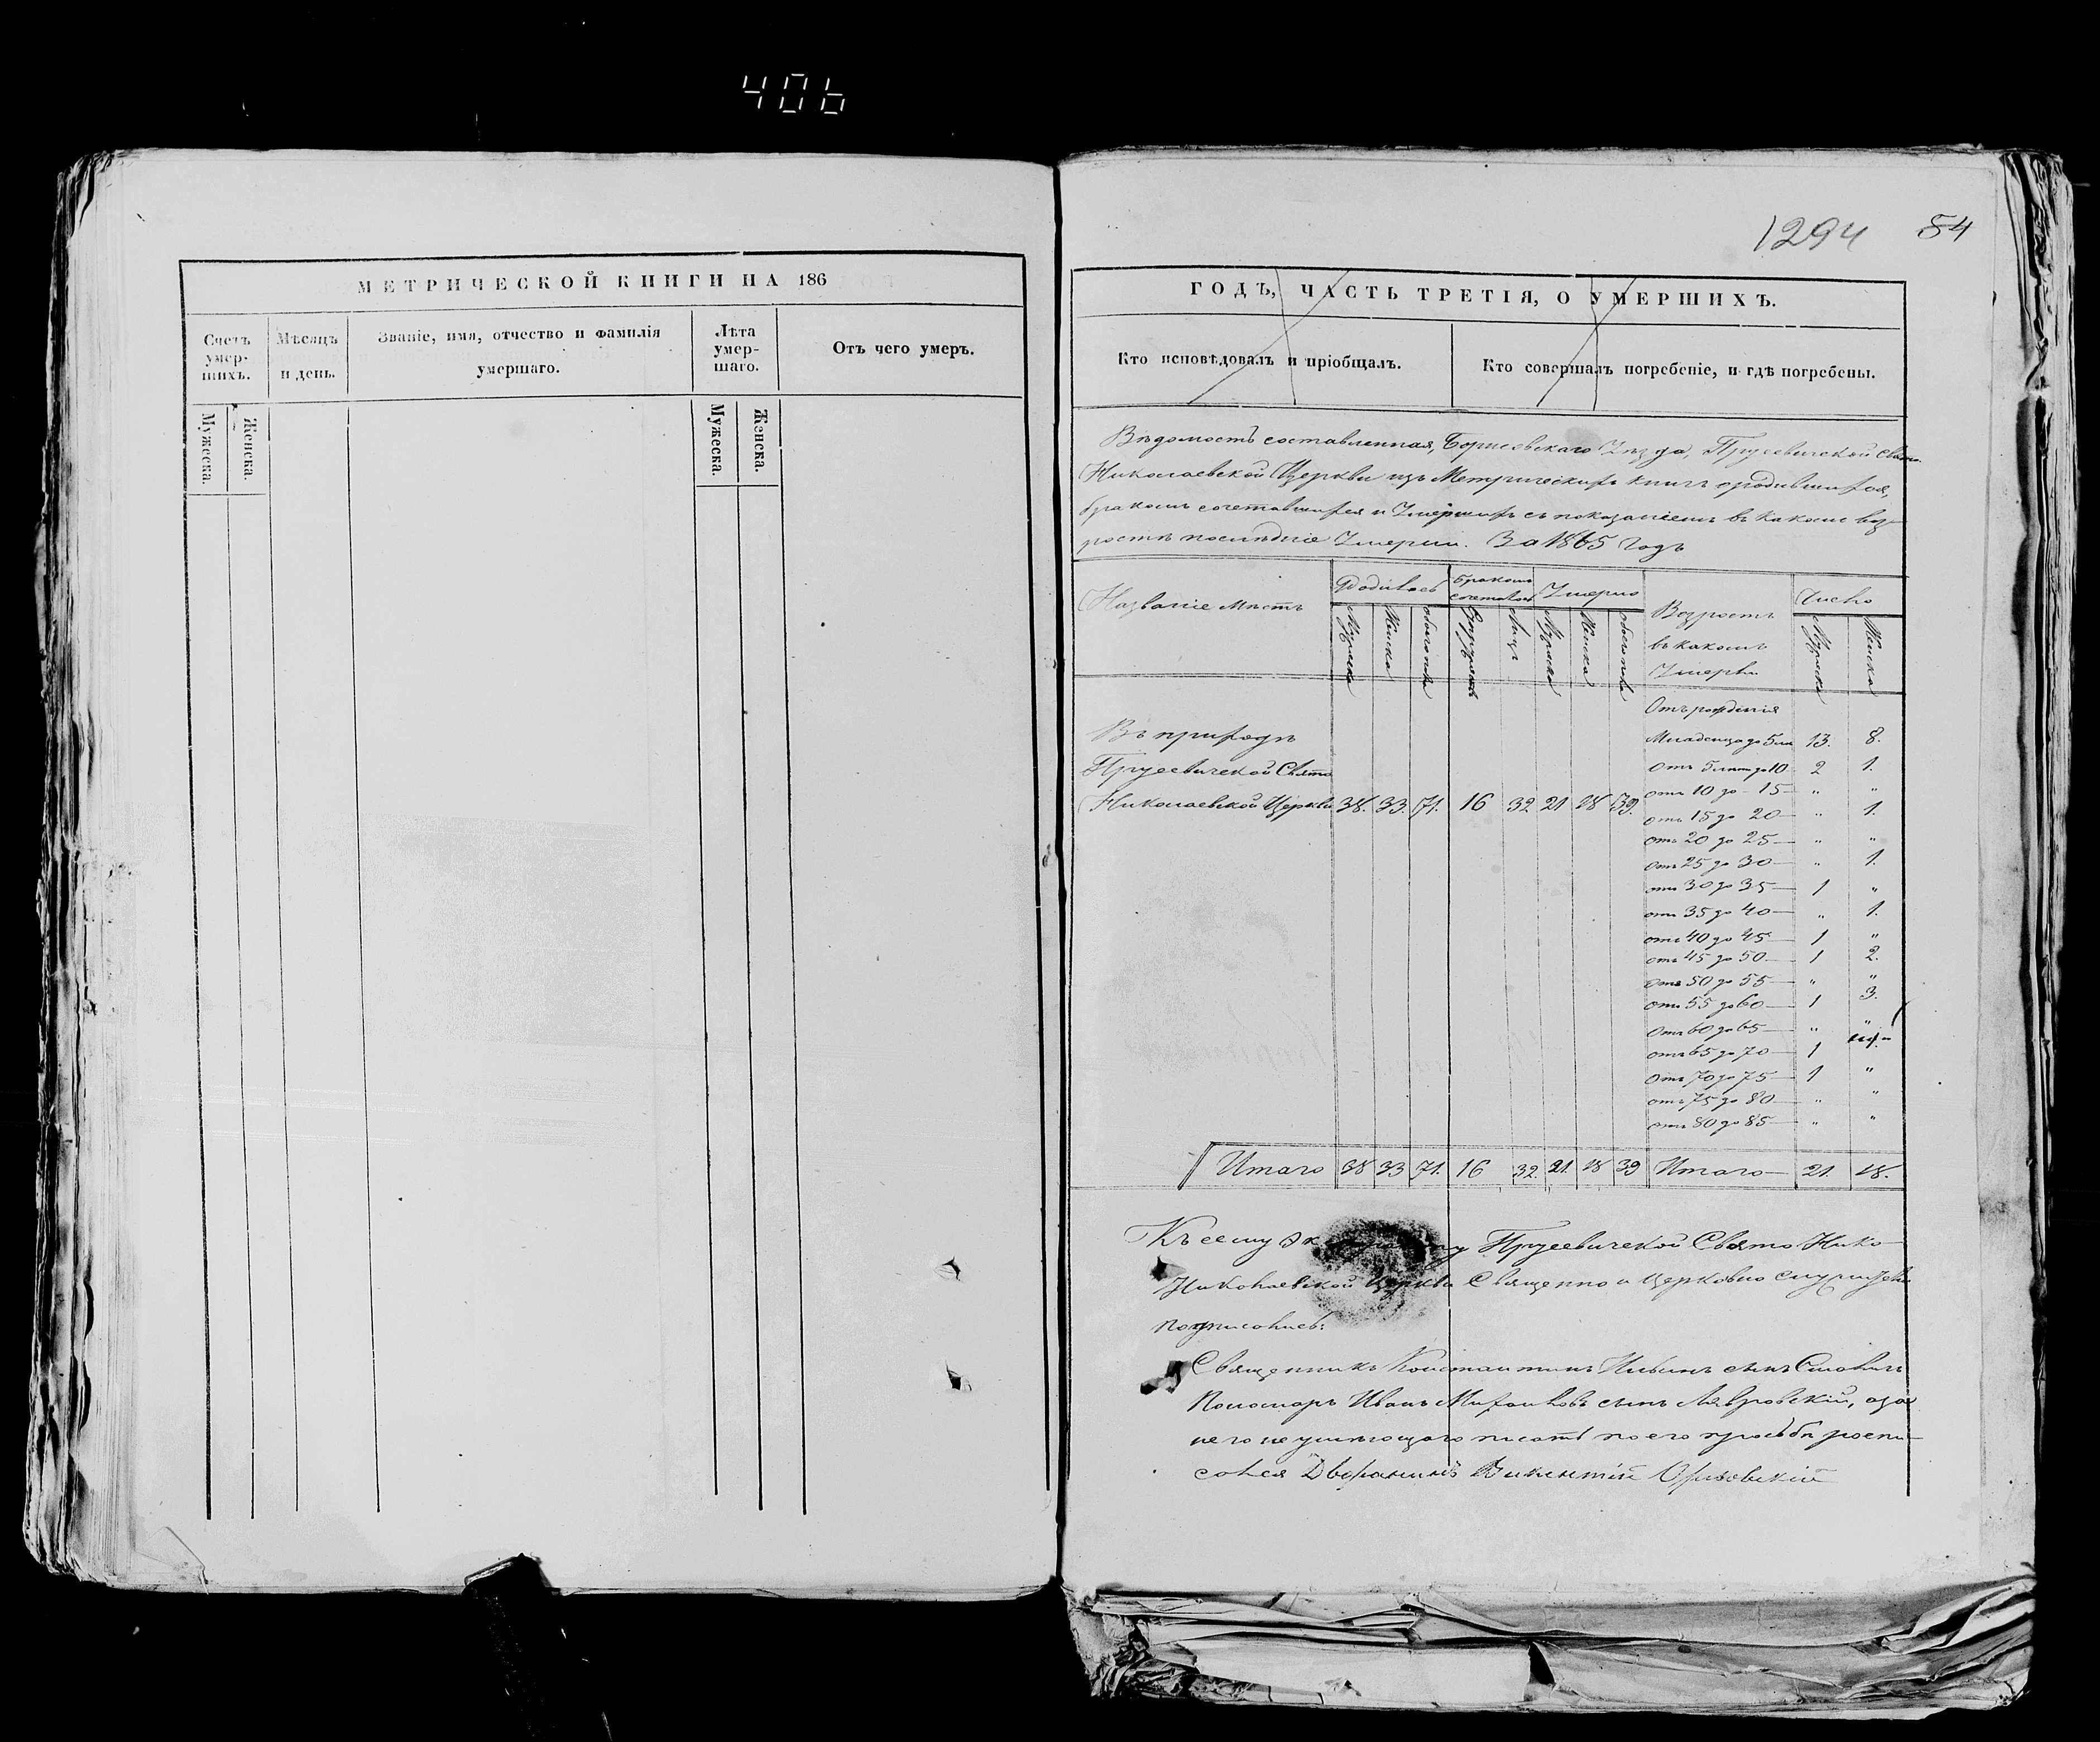 406
1294 54
МЕТРИЧЕСКОЙ КНИГИ НА 186
Счетъ умер-шихъ.
Мѣсяцъ и день.
Званіе, имя, отчество и фамилія умершаго.
Лѣта умер-шаго.
Отъ чего умеръ.
Мужеска.
Женска.
Мужеска.
Женска.
ГОДЪ, ЧАСТЬ ТРЕТІЯ, О УМЕРШИХЪ.
Кто исповѣдовалъ и пріобщалъ.
Кто совершалъ погребеніе, и гдѣ погребены.
Вѣдомость составленная, Борисовскаго Уѣзда, Прусевичской Свято
Николаевской Церкви изъ Метрическихъ книгъ о родившихся,
бракомъ сочетавшихся и Умершихъ съ показаніемъ въ какомъ воз-
ростѣ послѣдніе Умерли. За 1865 годъ
Названіе мѣстъ
Родилось
Бракомъ сочеталось
Умерло
Возростъ
въ какомъ
Умерли
Число
Мужска
Женска
обоего пола
Супружествъ
Лицъ
Мужска
Женска
обоего пола
Мужска
Женска
Отъ рожденія
Въ приходѣ
Младенца до 5 лѣт 13. 8.
Прусевичской Свято
отъ 5 лѣтъ до 10 2 1.
Николаевской Церкви 38. 33. 71. 16 32 21 18 39.
отъ 10 до 15 — " "
отъ 15 до 20 — " 1.
отъ 20 до 25 — " "
отъ 25 до 30 — " 1.
отъ 30 до 35 — 1 "
отъ 35 до 40 — " 1.
отъ 40 до 45 — 1 "
отъ 45 до 50 — 1 2.
отъ 50 до 55 — " "
отъ 55 до 60 — 1 3.
отъ 60 до 65 — " "
отъ 65 до 70 — 1
отъ 70 до 75 — 1 "
отъ 75 до 80 — " "
отъ 80 до 85 — " "
Итаго 38 33 71. 16 32. 21. 18 39 Итаго — 21. 18.
Къ сему Прусевичской Свято Нико
Николаевской Церкви Священно и церковно служители
подписались:
Священникъ Константинъ сынъ
Пономарь Иванъ Михаиловъ сынъ Лавровскій, а за
него не умѣющаго писать по его прозьбѣ роспи-
сался Дворянинъ Викентій Орловскій